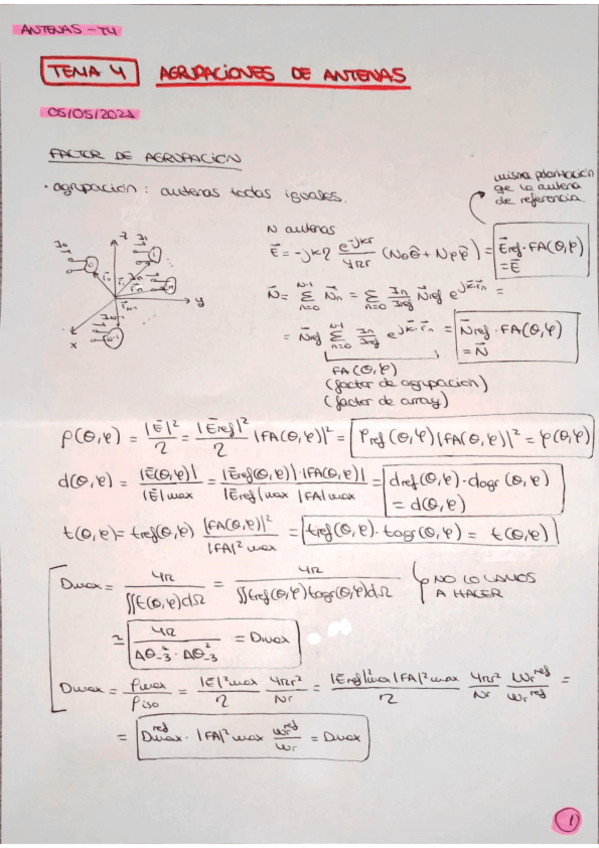 ANTENAS - T4
TEMA 4 AGRUPACIONES DE ANTENAS
05/05/2021
FACTOR DE AGRUPACIÓN
• agrupación : antenas todas iguales.
misma polarización
que la antena
de referencia.
N antenas
E⃗ = -jkη e^{-jkr}/4πr (Nθ θ̂ + Nφ φ̂) = E⃗ref · FA(θ,φ) = E⃗
N⃗ = Σ_{n=0}^{N-1} N⃗n = Σ_{n=0}^{N-1} In/Iref N⃗ref e^{jk⃗·r⃗n} =
= N⃗ref Σ_{n=0}^{N-1} In/Iref e^{jk⃗·r⃗n} = N⃗ref · FA(θ,φ) = N⃗
FA(θ,φ)
(factor de agrupación)
(factor de array)
z
y
x
ρ(θ,φ) = |E⃗|²/2 = |E⃗ref|²/2 |FA(θ,φ)|² = ρref(θ,φ)|FA(θ,φ)|² = ρ(θ,φ)
d(θ,φ) = |E⃗(θ,φ)|/|E⃗|max = |E⃗ref(θ,φ)|·|FA(θ,φ)|/|E⃗ref|max |FA|max = dref(θ,φ)·dagr(θ,φ) = d(θ,φ)
t(θ,φ) = tref(θ,φ) |FA(θ,φ)|²/|FA|²max = tref(θ,φ)·tagr(θ,φ) = t(θ,φ)
Dmax = 4π/∬t(θ,φ)dΩ = 4π/∬tref(θ,φ)tagr(θ,φ)dΩ
NO LO VAMOS
A HACER
≃ 4π/Δθ₋₃ · Δθ₋₃² = Dmax
Dmax = ρmax/ρiso = |E|²max/η 4πr²/Wr = |Eref|²max|FA|²max/η 4πr²/Wr Wr^{ref}/Wr^{ref} =
= Dmax^{ref} · |FA|²max Wr^{ref}/Wr = Dmax
1